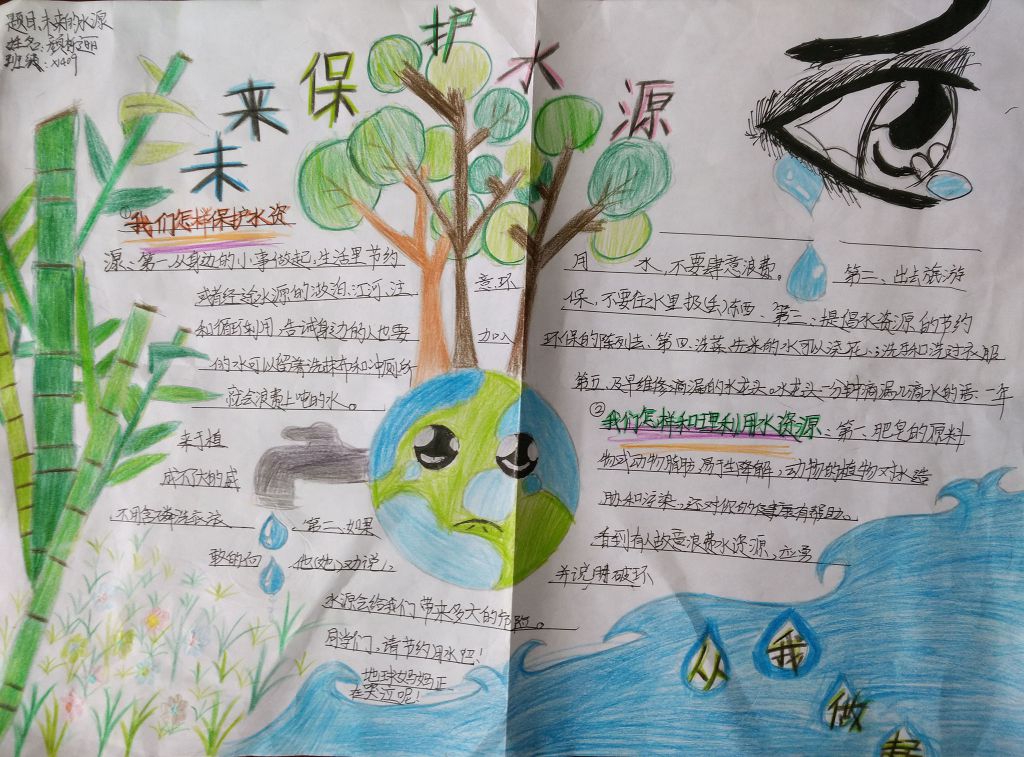 题目:未来的水源
姓名:
班级:x1409
未来保护水源
①我们怎样保护水资
源、第一,从身边的小事做起,生活里节约
月 水,不要肆意浪费。 第二、出去旅游
或者经途水源的湖泊、江河,注 意环
保,不要往水里扔丢东西、第三、提倡水资源的节约
和循环利用,告诫身边的人也要 加入
环保的阵列去;第四、洗菜、洗米的水可以浇花、;洗手和洗过衣服
的水可以留着洗抹布和冲厕所
第五、及早维修滴漏的水龙头。水龙头一分钟滴漏几滴水的话、一年
就会浪费上吨的水。
②我们怎样和理利用水资源、第一、肥皂的原料
来于植
物或动物脂肪、易于降解,动物的植物对水造
成不大的威
胁和污染,还对你的健康有帮助。
不用含磷洗衣液 、第二、如果
看到有人故意浪费水资源、应勇
敢的向 他(她)劝说、
并说明破坏
水源会给我们带来多大的危险。
同学们、请节约用水吧!
地球妈妈正
在哭泣呢!
从
我
做